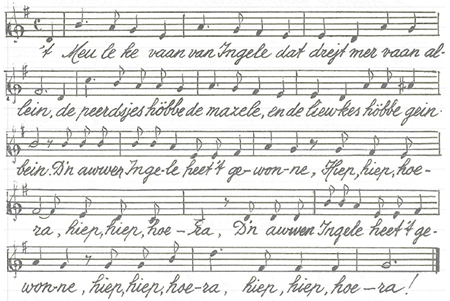 't Meu le ke vaan van Ingele dat drejt mer vaan al-
lein, de peerdsjes höbbe de mazele, en de liew-kes höbbe gein
bein. D'n awwen Inge-le heet 't ge-won-ne, Hiep, hiep, hoe-
ra, hiep, hiep, hoe-ra, D'n awwen Ingele heet 't ge-
won-ne, hiep, hiep, hoe-ra, hiep, hiep, hoe-ra!